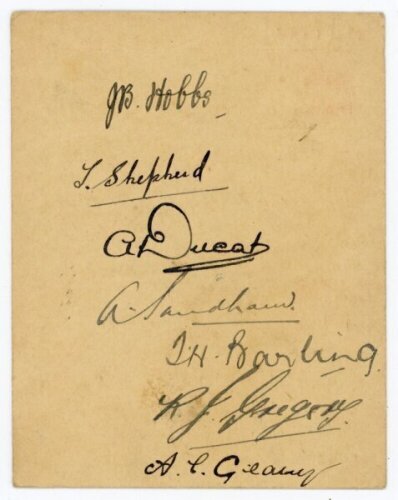 J.B. Hobbs
T. Shepherd
A. Ducat
A. Sandham.
T.H. Barling.
R. J. Gregory.
A. C. Geary